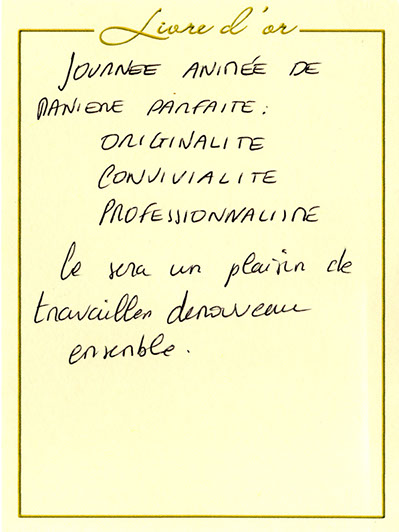 Livre d'or
JOURNEE ANIMÉE DE
MANIERE PARFAITE :
ORIGINALITE
CONVIVIALITE
PROFESSIONNALISME
Ce sera un plaisir de
travailler denouveau
ensemble.